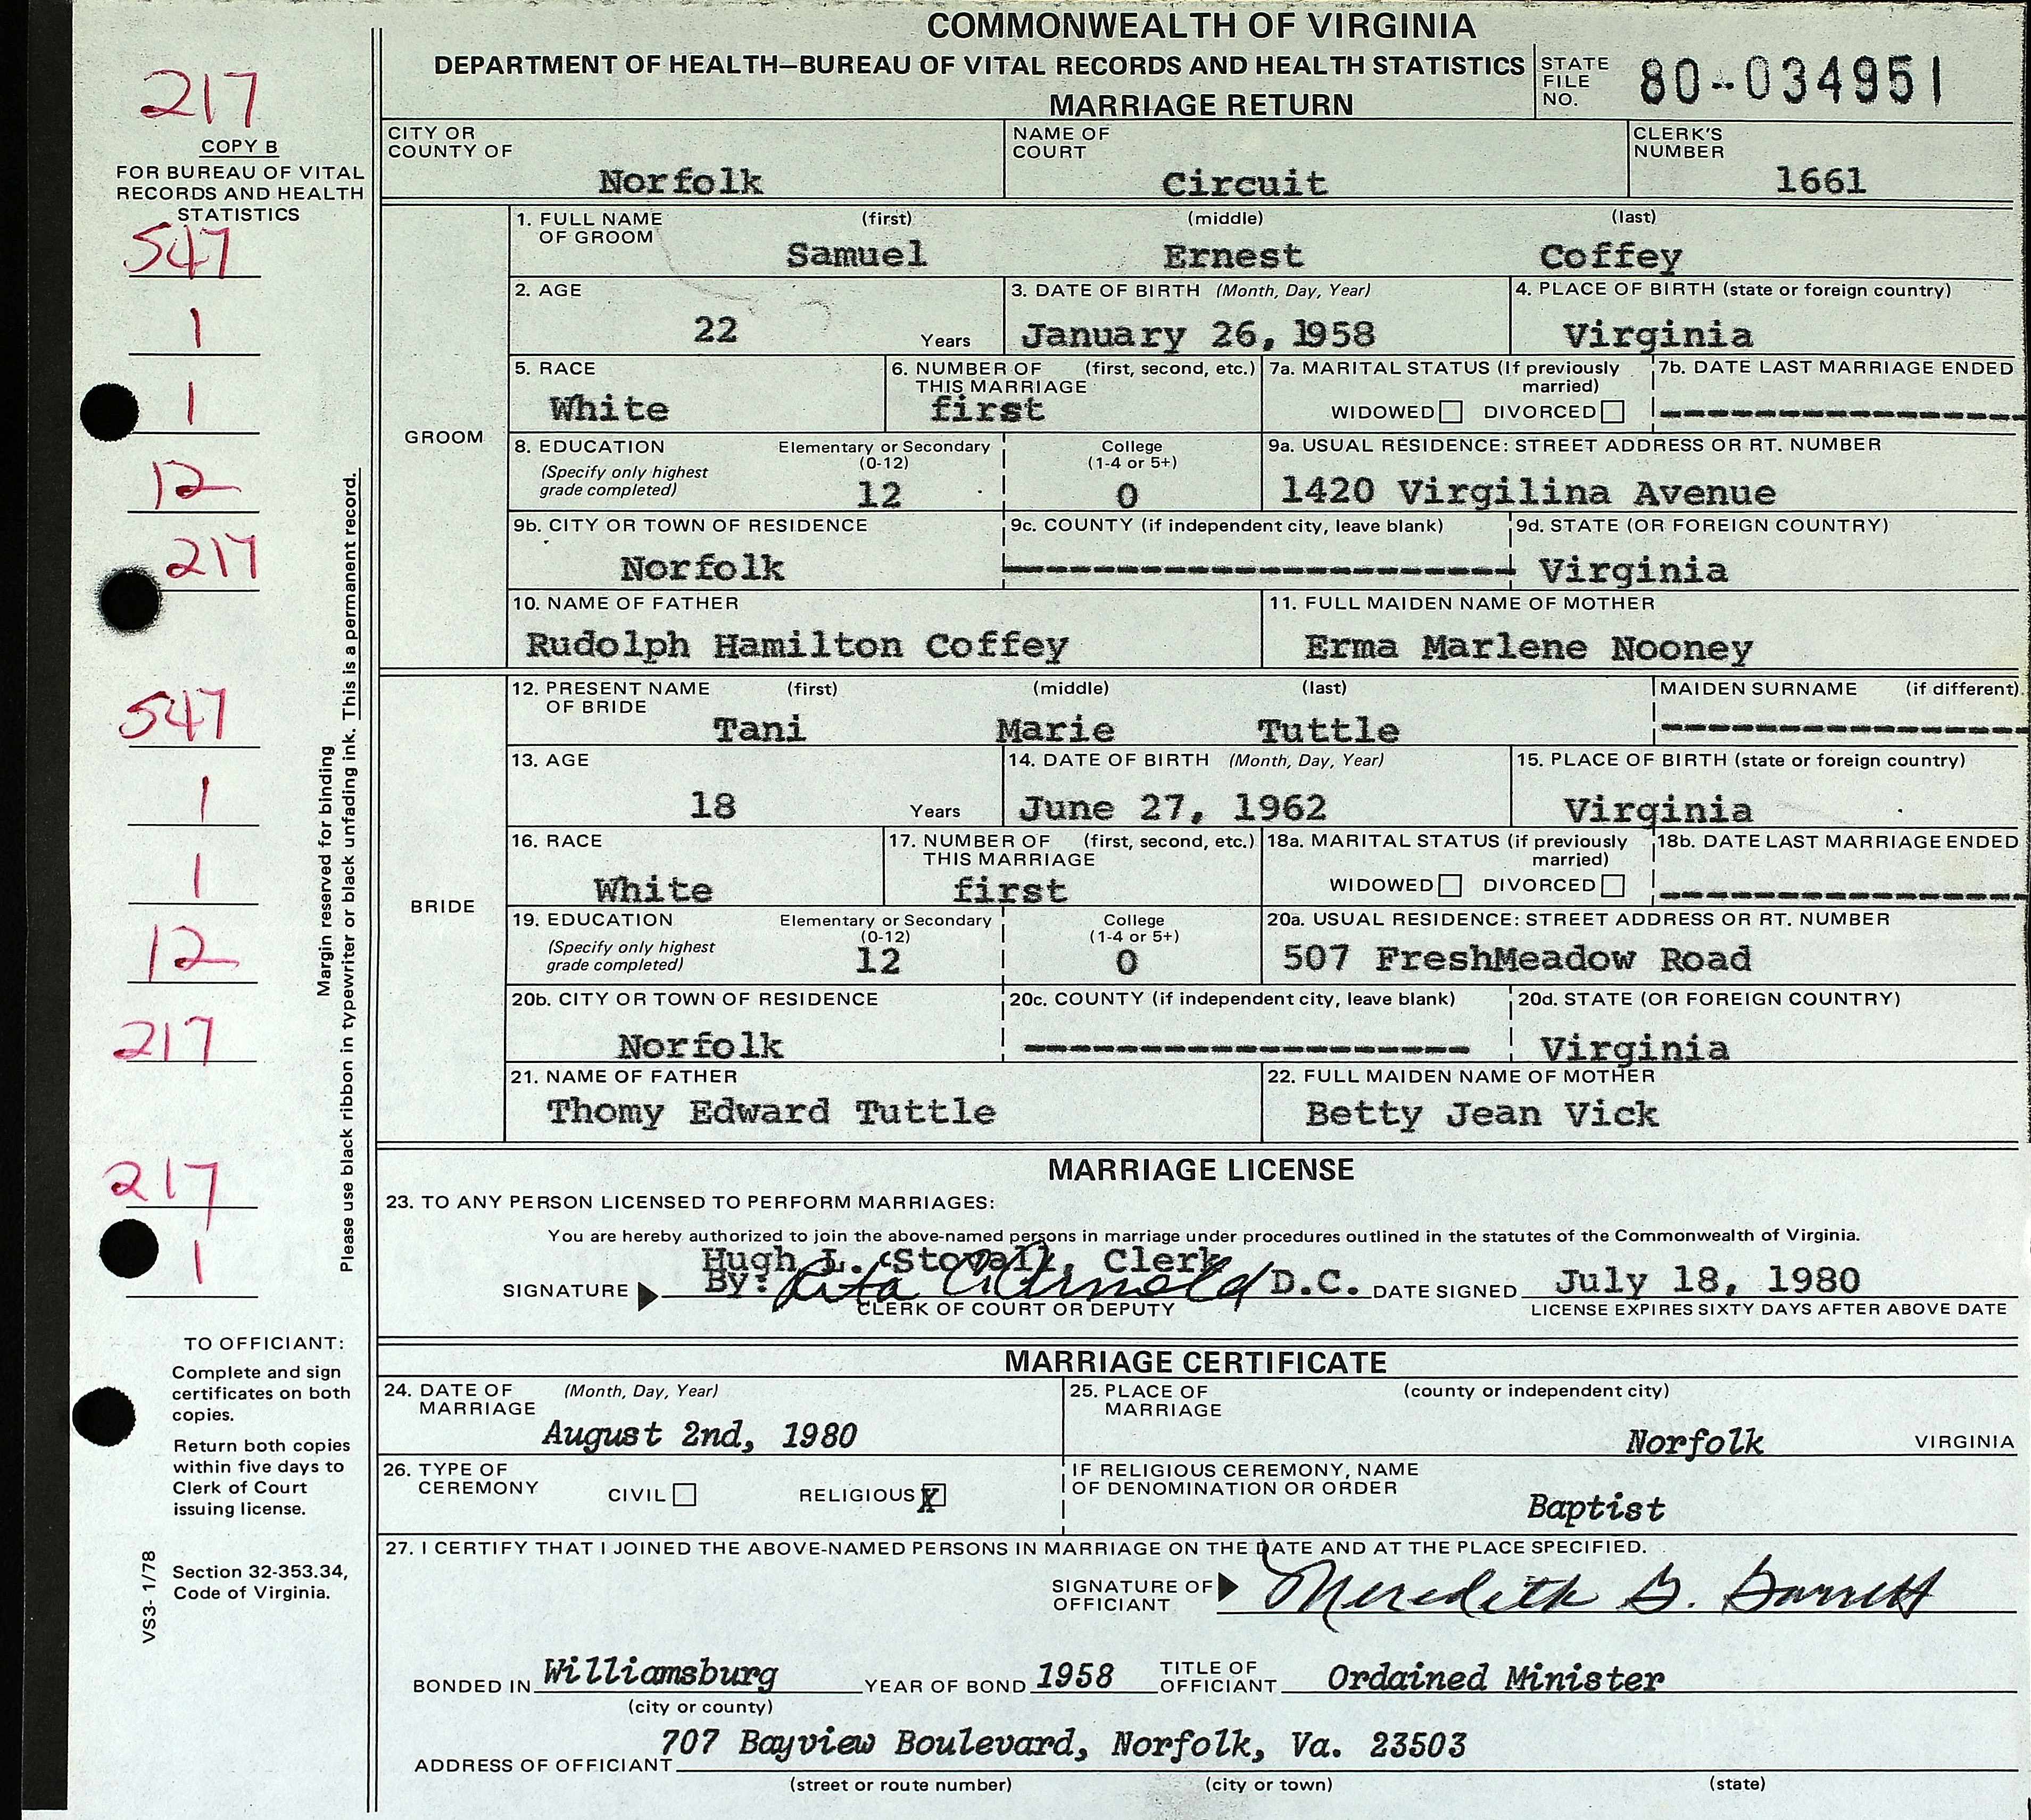 COMMONWEALTH OF VIRGINIA
DEPARTMENT OF HEALTH—BUREAU OF VITAL RECORDS AND HEALTH STATISTICS
MARRIAGE RETURN
STATE FILE NO. 80-034951
217
COPY B
FOR BUREAU OF VITAL
RECORDS AND HEALTH
STATISTICS
547
1
1
12
217
547
1
1
12
217
217
1
Margin reserved for binding
Please use black ribbon in typewriter or black unfading ink. This is a permanent record.
TO OFFICIANT:
Complete and sign
certificates on both
copies.
Return both copies
within five days to
Clerk of Court
issuing license.
Section 32-353.34,
Code of Virginia.
VS3- 1/78
CITY OR COUNTY OF Norfolk
NAME OF COURT Circuit
CLERK'S NUMBER 1661
GROOM
1. FULL NAME OF GROOM (first) (middle) (last)
Samuel Ernest Coffey
2. AGE 22 Years
3. DATE OF BIRTH (Month, Day, Year) January 26, 1958
4. PLACE OF BIRTH (state or foreign country) Virginia
5. RACE White
6. NUMBER OF THIS MARRIAGE (first, second, etc.) first
7a. MARITAL STATUS (If previously married) WIDOWED DIVORCED
7b. DATE LAST MARRIAGE ENDED
8. EDUCATION (Specify only highest grade completed)
Elementary or Secondary (0-12) 12
College (1-4 or 5+) 0
9a. USUAL RESIDENCE: STREET ADDRESS OR RT. NUMBER
1420 Virgilina Avenue
9b. CITY OR TOWN OF RESIDENCE Norfolk
9c. COUNTY (if independent city, leave blank)
9d. STATE (OR FOREIGN COUNTRY) Virginia
10. NAME OF FATHER
Rudolph Hamilton Coffey
11. FULL MAIDEN NAME OF MOTHER
Erma Marlene Nooney
BRIDE
12. PRESENT NAME OF BRIDE (first) (middle) (last)
Tani Marie Tuttle
MAIDEN SURNAME (if different)
13. AGE 18 Years
14. DATE OF BIRTH (Month, Day, Year) June 27, 1962
15. PLACE OF BIRTH (state or foreign country) Virginia
16. RACE White
17. NUMBER OF THIS MARRIAGE (first, second, etc.) first
18a. MARITAL STATUS (if previously married) WIDOWED DIVORCED
18b. DATE LAST MARRIAGE ENDED
19. EDUCATION (Specify only highest grade completed)
Elementary or Secondary (0-12) 12
College (1-4 or 5+) 0
20a. USUAL RESIDENCE: STREET ADDRESS OR RT. NUMBER
507 FreshMeadow Road
20b. CITY OR TOWN OF RESIDENCE Norfolk
20c. COUNTY (if independent city, leave blank)
20d. STATE (OR FOREIGN COUNTRY) Virginia
21. NAME OF FATHER
Thomy Edward Tuttle
22. FULL MAIDEN NAME OF MOTHER
Betty Jean Vick
MARRIAGE LICENSE
23. TO ANY PERSON LICENSED TO PERFORM MARRIAGES:
You are hereby authorized to join the above-named persons in marriage under procedures outlined in the statutes of the Commonwealth of Virginia.
Hugh L. Stovall, Clerk
SIGNATURE By: Rita A Arnold D.C. DATE SIGNED July 18, 1980
CLERK OF COURT OR DEPUTY
LICENSE EXPIRES SIXTY DAYS AFTER ABOVE DATE
MARRIAGE CERTIFICATE
24. DATE OF MARRIAGE (Month, Day, Year)
August 2nd, 1980
25. PLACE OF MARRIAGE (county or independent city)
Norfolk VIRGINIA
26. TYPE OF CEREMONY CIVIL RELIGIOUS X
IF RELIGIOUS CEREMONY, NAME OF DENOMINATION OR ORDER
Baptist
27. I CERTIFY THAT I JOINED THE ABOVE-NAMED PERSONS IN MARRIAGE ON THE DATE AND AT THE PLACE SPECIFIED.
SIGNATURE OF OFFICIANT Meredith G. Garrett
BONDED IN Williamsburg YEAR OF BOND 1958 TITLE OF OFFICIANT Ordained Minister
(city or county)
ADDRESS OF OFFICIANT 707 Bayview Boulevard, Norfolk, Va. 23503
(street or route number) (city or town) (state)